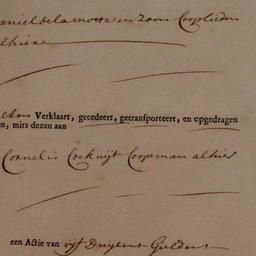 aniel de la motte en Zoon Cooplieden
alhier
elken Verklaart, gecedeert, getransporteert, en opgedragen
en, mits dezen aan
Cornelis Cockuijt Coopman alhier
een Actie van vijf Duijsent Guldens